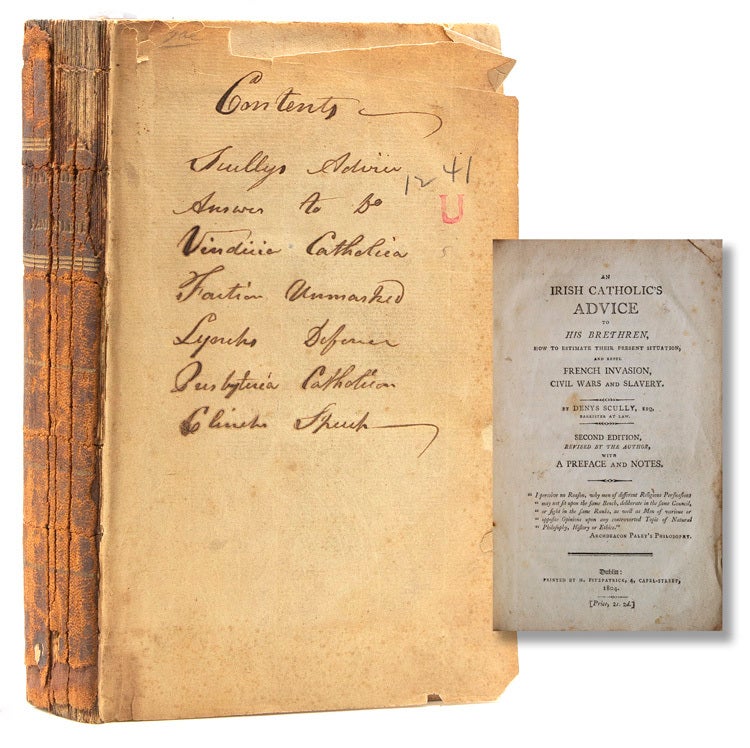 Contents
Scullys Advice
12 41
Answer to Do
U
Vindicia Catholica
Faction Unmasked
Lynchs Defence
Presbyteria Catholicon
Clinchs Speech
AN
IRISH CATHOLIC'S
ADVICE
TO
HIS BRETHREN,
HOW TO ESTIMATE THEIR PRESENT SITUATION,
AND REPEL
FRENCH INVASION,
CIVIL WARS AND SLAVERY.
BY DENYS SCULLY, ESQ.
BARRISTER AT LAW.
SECOND EDITION,
REVISED BY THE AUTHOR,
WITH
A PREFACE AND NOTES.
"I perceive no Reason, why men of different Religious Persuasions
"may not sit upon the same Bench, deliberate in the same Council,
"or fight in the same Ranks, as well as Men of various or
"opposite Opinions upon any controverted Topic of Natural
"Philosophy, History or Ethics."
ARCHDEACON PALEY'S PHILOSOPHY.
Dublin:
PRINTED BY H. FITZPATRICK, 4, CAPEL-STREET,
1804.
[Price, 2s. 2d.]